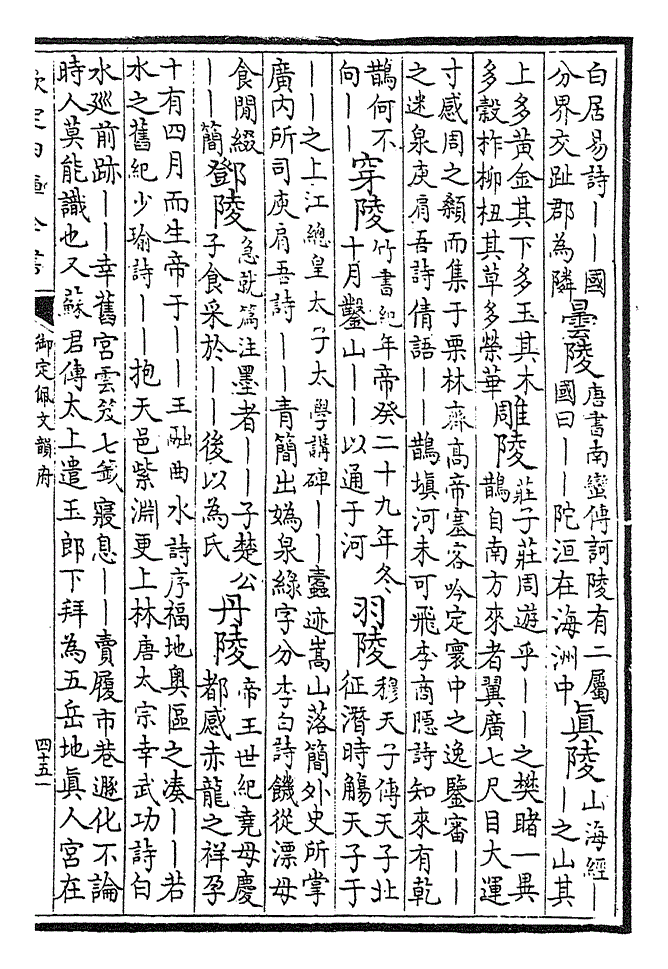 白居易詩——國
分界交趾郡為隣
曇陵
唐書南蠻傳訶陵有二屬
國曰——陀洹在海洲中
真陵
山海經—
—之山其
上多黄金其下多玉其木
多榖柞柳杻其草多榮華
雕陵
莊子莊周遊乎——之樊睹一異
鵲自南方來者翼廣七尺目大運
寸感周之顙而集于栗林齋高帝塞客吟定寰中之逸鑒審——
之迷泉庾肩吾詩倩語——鵲填河未可飛李商隱詩知來有乾
鵲何不
向——
穿陵
竹書紀年帝癸二十九年冬
十月鑿山——以通于河
羽陵
穆天子傳天子北
征濳時觴天子于
——之上江總皇太子太學講碑——蠧迹嵩山落簡外史所掌
廣内所司庾肩吾詩——青簡出媯泉綠字分李白詩饑從漂母
食閒綴
——簡
鄧陵
急就篇注墨者——子楚公
子食采於——後以為氏
丹陵
帝王世紀堯母慶
都感赤龍之祥孕
十有四月而生帝于——王融曲水詩序福地奥區之湊——若
水之舊紀少瑜詩——抱天邑紫淵更上林唐太宗幸武功詩白
水廵前跡——幸舊宫雲笈七籖寢息——賣履市巷遯化不論
時人莫能識也又蘇君傳太上遣玉郎下拜為五岳地真人宫在
欽定四庫全書
御定佩文韻府
四十五一